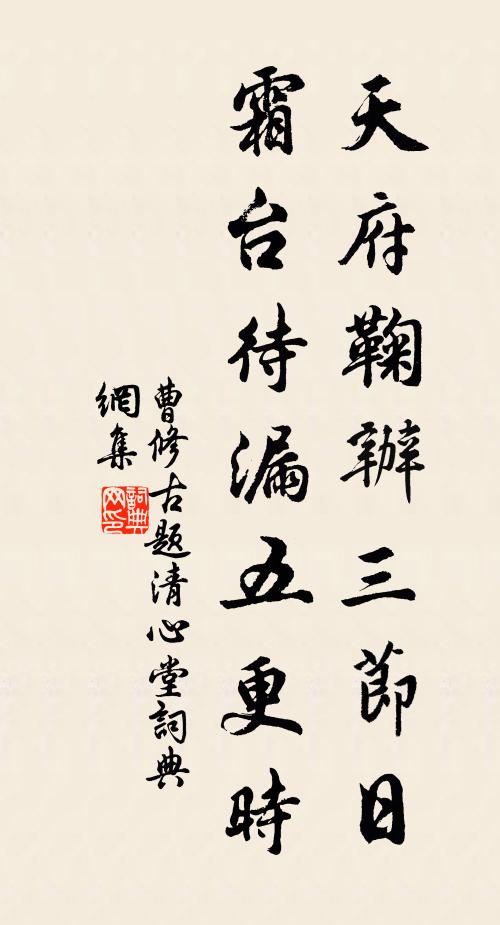 天府鞠辦三節日
霜台待漏五更時
曹修古題清心堂詞典
網集
詞典
网印